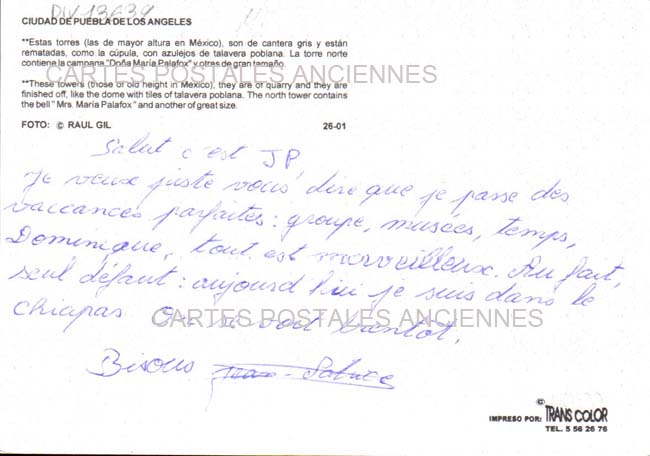 DIV 13634
CIUDAD DE PUEBLA DE LOS ANGELES
**Estas torres (las de mayor altura en México), son de cantera gris y están
rematadas, como la cúpula, con azulejos de talavera poblana. La torre norte
contiene la campana "Doña María Palafox" y otras de gran tamaño.
CARTES POSTALES ANCIENNES
**These towers (those of old height in Mexico), they are of quarry and they are
finished off, like the dome with tiles of talavera poblana. The north tower contains
the bell " Mrs. María Palafox" and another of great size.
FOTO: © RAUL GIL 26-01
Salut c'est JP
Je veux juste vous dire que je passe des
vaccances parfaites : groupe, musées, temps,
Dominique, tout est merveilleux. Au fait,
seul défaut : aujourd'hui je suis dans le
chiapas On se voit bientot.
CARTES POSTALES ANCIENNES
Bisous
©
IMPRESO POR: TRANS COLOR
TEL. 5 56 26 76